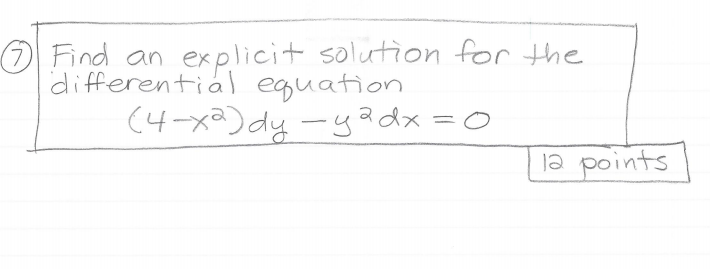 ⑦ Find an explicit solution for the
differential equation
(4-x²)dy - y²dx = 0
12 points